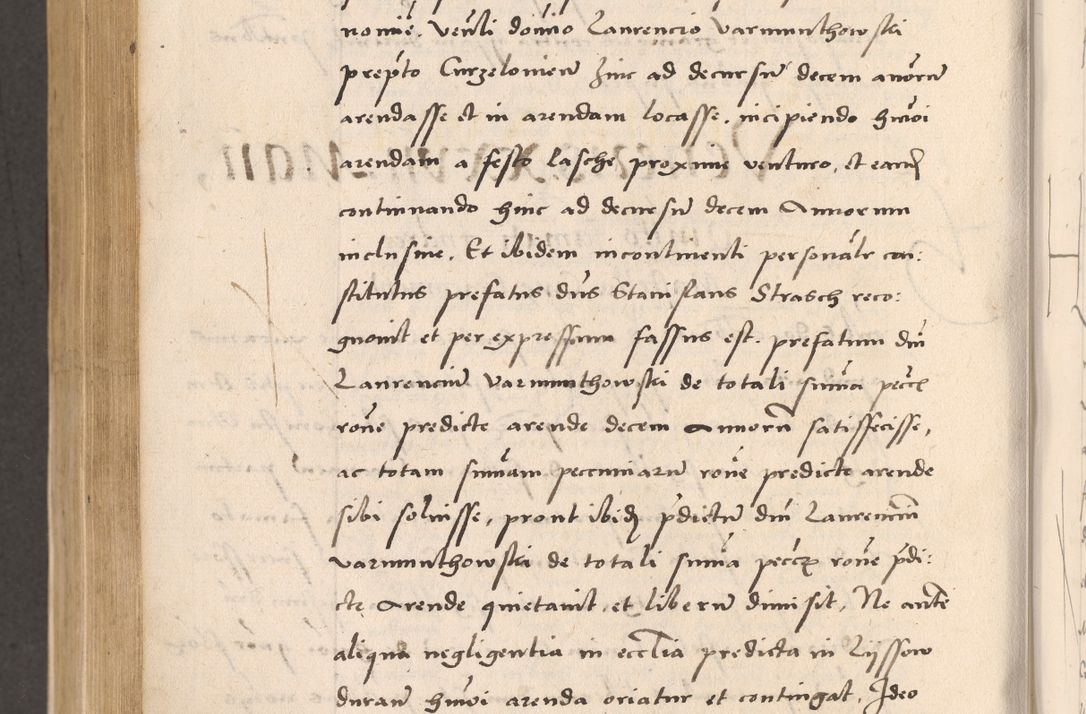 nomie. Venli domio Laurencio Varmunthowski
prepto Curzelonien hinc ad decursu decem anoru
arendasse et in arendam locasse, incipiendo huioi
arendam a festo Pasche proxime venturo, et eand
continuando hinc ad decursu decem Annorum
inclusiue. Et ibidem incontinenti personalr con:
stitutus prefatus dns Stanislaus Strasch reco:
gnouit et per expressum fassus est. prefatum dnm
Laurenciu Varmunthowski de totali suma pecce
rone predicte arende decem Annoru satisfecisse,
ac totam sumam peccuniaru rone predicte arende
sibi soluisse, prout ibid pdictu dnm Laurenciu
Varmunthowski de totali suma pecce rone pdi:
cte Arende quietauit, et liberu dimisit, Ne ante
aliqua negligentia in ecclia predicta in Lyssow
duran huioi arenda oriatur et contingat. Ideo